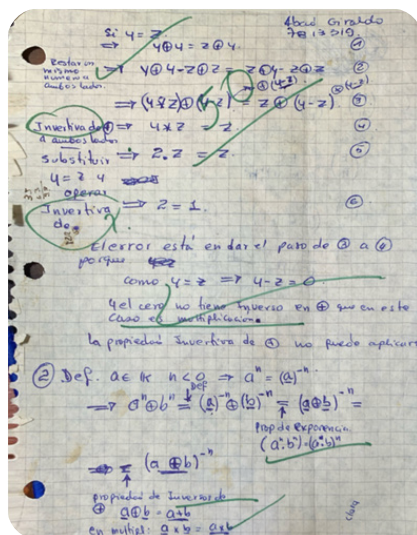 Abad Giraldo
78 13 519
Si y = z
⇒ y⊕y = z⊕y. ①
Restar un mismo numero a ambos lados. ⇒ y⊕y - z⊕z = z⊕y - z⊕z ②
⇒ (y*z)⊕(y-z) = z⊕(y-z) ③
Invertiva de ⊕ ⇒ y*z = z. ④
A ambos lados
Substituir ⇒ 2.z = z. ⑤
y = z y
operar
Invertiva ⇒ 2 = 1. ⑥
de
El error está en dar el paso de ③ a ④
porque
como y = z ⇒ y-z = 0
y el cero no tiene inverso en ⊕ que en este
caso es multiplicacion.
La propiedad Invertiva de ⊕ no puede aplicarse
② Def. a∈ℝ n<0 ⇒ aⁿ = (a)⁻ⁿ
Def
⇒ aⁿ⊕bⁿ = (a)⁻ⁿ⊕(b)⁻ⁿ = (a⊕b)⁻ⁿ =
Prop de Exponencia
(aⁿ.bⁿ)=(a.b)ⁿ
= (a⊕b)⁻ⁿ
propiedad de Inversos de
⊕ a⊕b = a+b
en multipl: a x b = axb